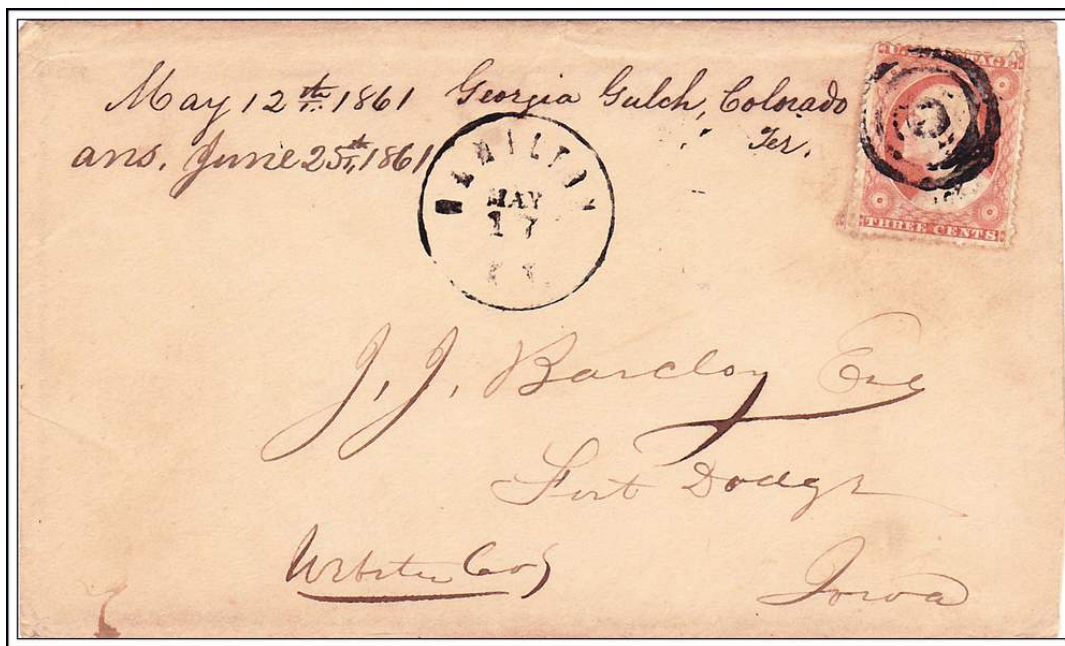 May 12th 1861 Georgia Gulch, Colorado
Ter.
ans. June 25th, 1861
HAMILTON
MAY
17
THREE CENTS
J. J. Barclay Esq
Fort Dodge
Webster Co
Iowa